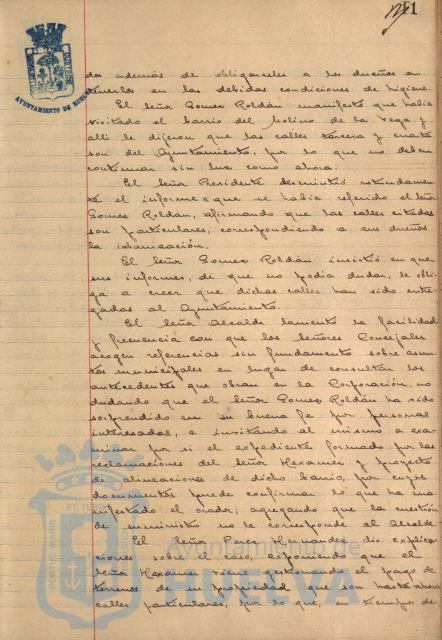 151
AYUNTAMIENTO DE HUELVA
dos además de obligarseles a los dueños a
tenerlos en las debidas condiciones de higiene.
El Señor Gomez Roldán manifestó que había
visitado el barrio del Molino de la Vega y
alli le dijeron que las calles tercera y cuarta
son del Ayuntamiento, por lo que no deben
continuar sin luz como ahora.
El Señor Presidente desmintió rotundamen-
te el informe a que se había referido el Señor
Gomez Roldán, afirmando que las calles citadas
son particulares, correspondiendo a sus dueños
la urbanización.
El Señor Gomez Roldán insistió en que
sus informes, de que no podia dudar, le obli-
ga a creer que dichas calles han sido entre-
gadas al Ayuntamiento.
El Señor Alcalde lamenta la facilidad
y frecuencia con que los Señores Concejales
acogen referencias sin fundamento sobre asun-
tos municipales en lugar de consultar los
antecedentes que obran en la Corporación, no
dudando que el Señor Gomez Roldán ha sido
sorprendido en su buena fe por personas
interesadas, e invitando al mismo a exa-
minar por si el expediente formado por las
reclamaciones del Señor Hexamer y proyecto
de alineaciones de dicho barrio, por cuyos
documentos puede confirmar lo que ha ma-
nifestado el orador, agregando que la cuestión
de suministro no le corresponde al Alcalde
El Señor Perez Hernandez dió explica-
ciones sobre el caso, exponiendo que el
Señor Hexamer viene gestionando el pago de
terrenos de su propiedad que son hasta ahora
calles particulares, por lo que, en tiempo de
Ayuntamiento de
HUELVA
PORTUS MARIS ET TE